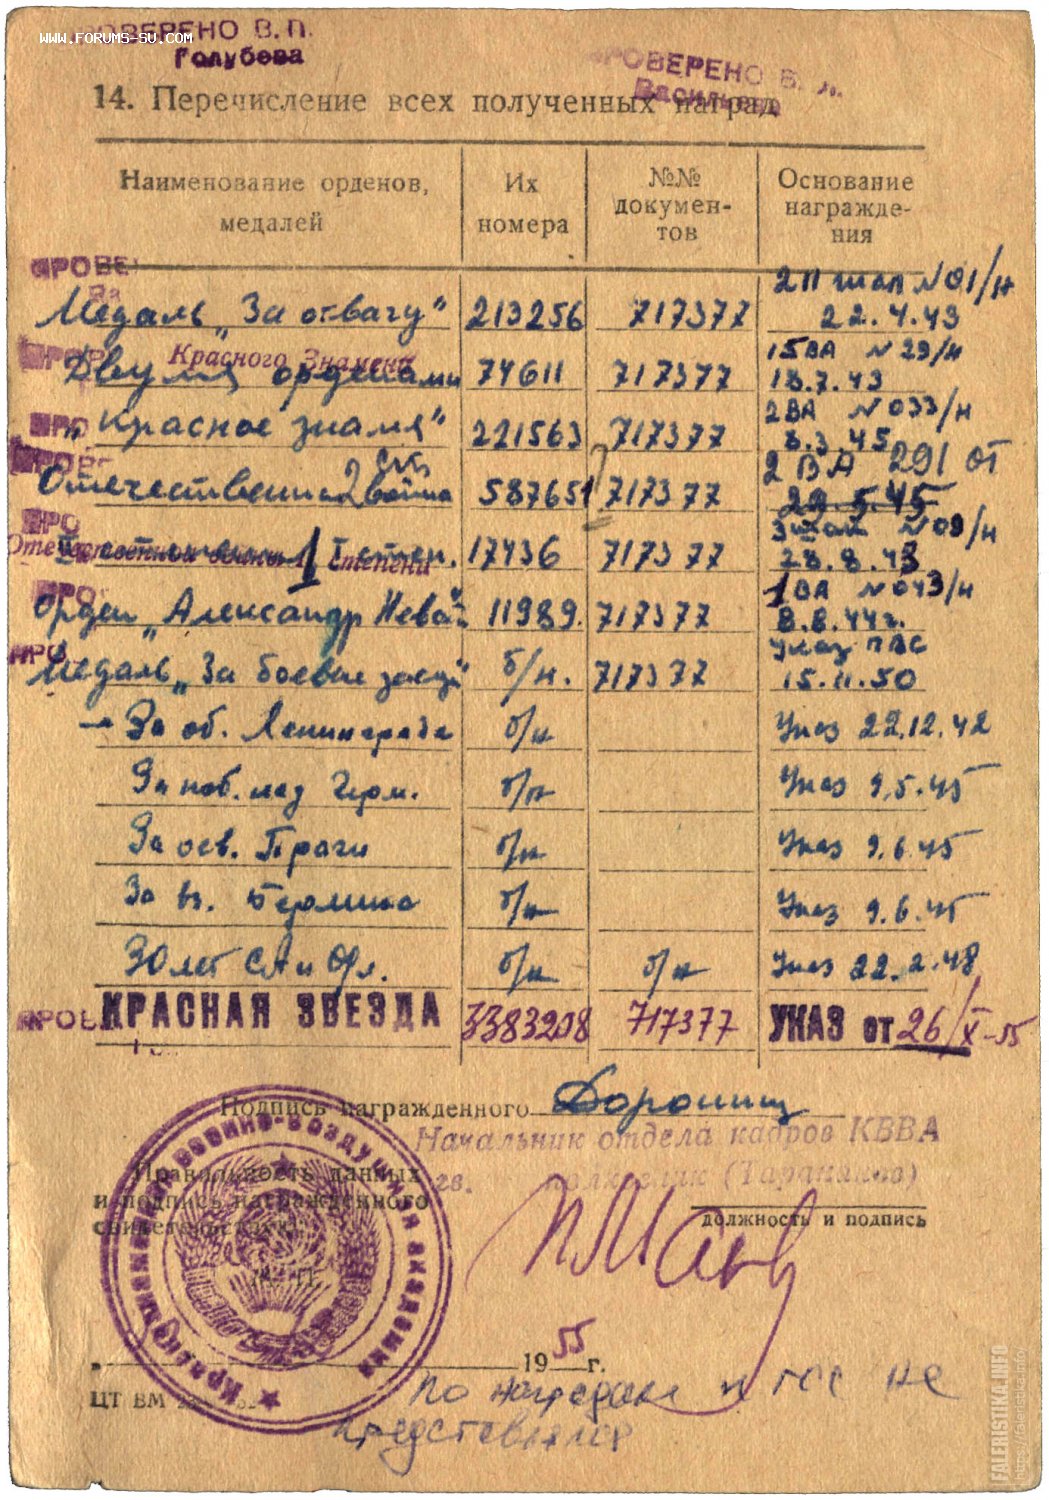 ПРОВЕРЕНО В. П.
www.forums-su.com
Голубева
ПРОВЕРЕНО В. Л.
Васильева
14. Перечисление всех полученных наград
Наименование орденов, медалей
Их номера
№№ докумен-тов
Основание награжде-ния
ПРОВЕ
Медаль „За отвагу" 213256 717377 22.4.43
ПРОВ Красного Знамени 15ВА №29/н
Двумя орденами 74611 717377 18.7.43
ПРО 2ВА №033/н
„Красное знамя" 221563 717377 8.3.45
ПРОВЕ 2 ВА 291 от
Отечественная 2 война 587651 717377 29.5.45
ПРО №09/н
Отечественной войны 1 степени 17436 717377 28.8.43
ПРО 1ВА №043/н
Орден „Александр Невс 11989. 717377 8.8.44г.
ПРО Указ ПВС
Медаль „За боевые засл" б/н. 717377 15.11.50
За об. Ленинграда б/н Указ 22.12.42
За поб. над Герм. б/н Указ 9.5.45
За осв. Праги б/н Указ 9.6.45
За вз. Берлина б/н Указ 9.6.45
30 лет СА и Фл. б/н б/н Указ 22.2.48
ПРОВ КРАСНАЯ ЗВЕЗДА 3383208 717377 УКАЗ от 26/X-55
Подпись награжденного
Начальник отдела кадров КВВА
Правильность данных
и подпись награжденного
свидетельствую:
гв. полковник (Тараняков)
должность и подпись
М. П.
Краснознаменная военно-воздушная академия
19 55 г.
ЦТ ВМ
По наградам к ГСС не
представлялся
FALERISTIKA.INFO
https://faleristika.info